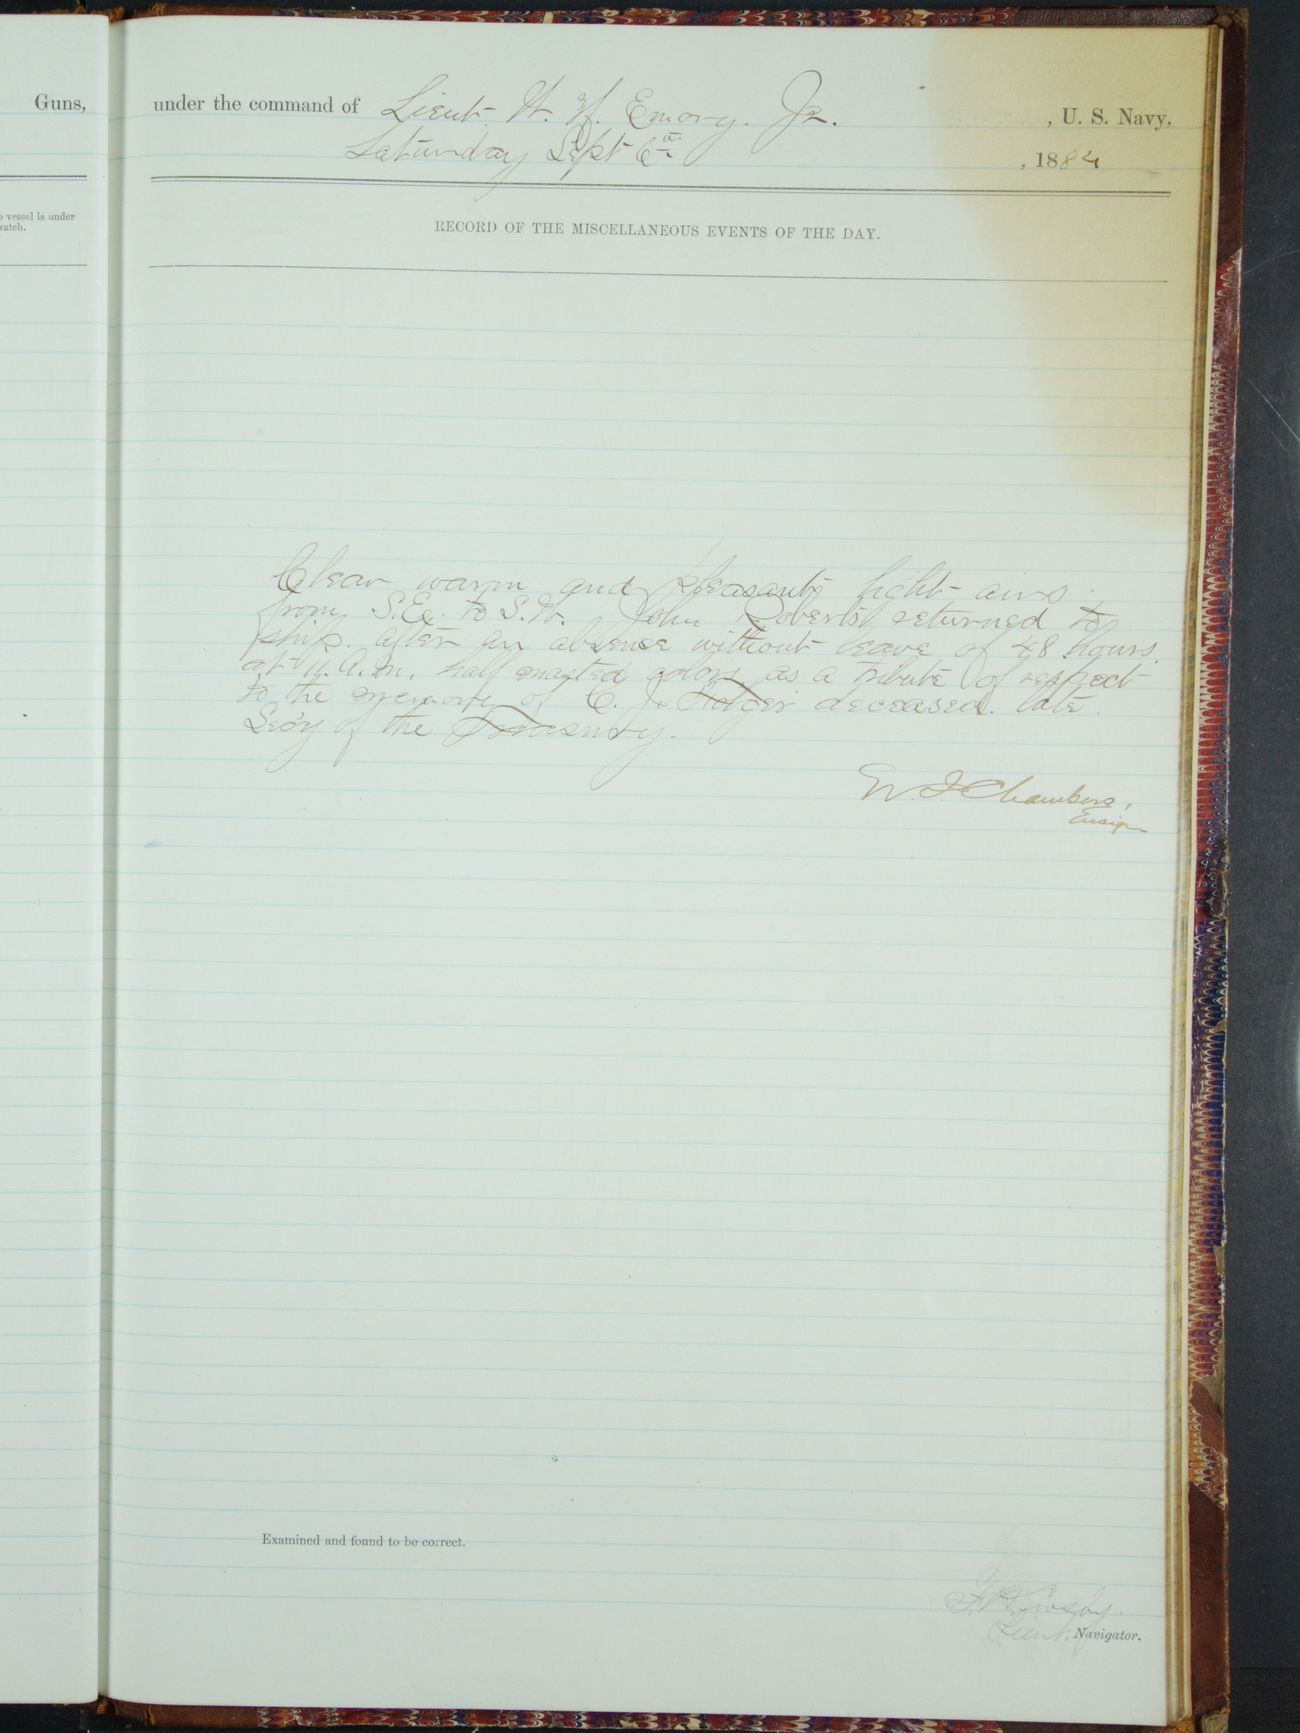 Guns,
under the command of Lieut. W. H. Emory. Jr. , U. S. Navy,
Saturday Sept 6th , 1884
e vessel is under
watch.
RECORD OF THE MISCELLANEOUS EVENTS OF THE DAY.
Clear warm and pleasant light airs
from S.E. to S.W. John Roberts returned to
ship after an absence without leave of 48 hours.
at 11. A.M. half masted colors as a tribute of respect
to the memory of C. J. Folger deceased. late
Sec'y of the Treasury.
W. I. Chambers,
Ensign
Examined and found to be correct.
Crosby.
Lieut. Navigator.